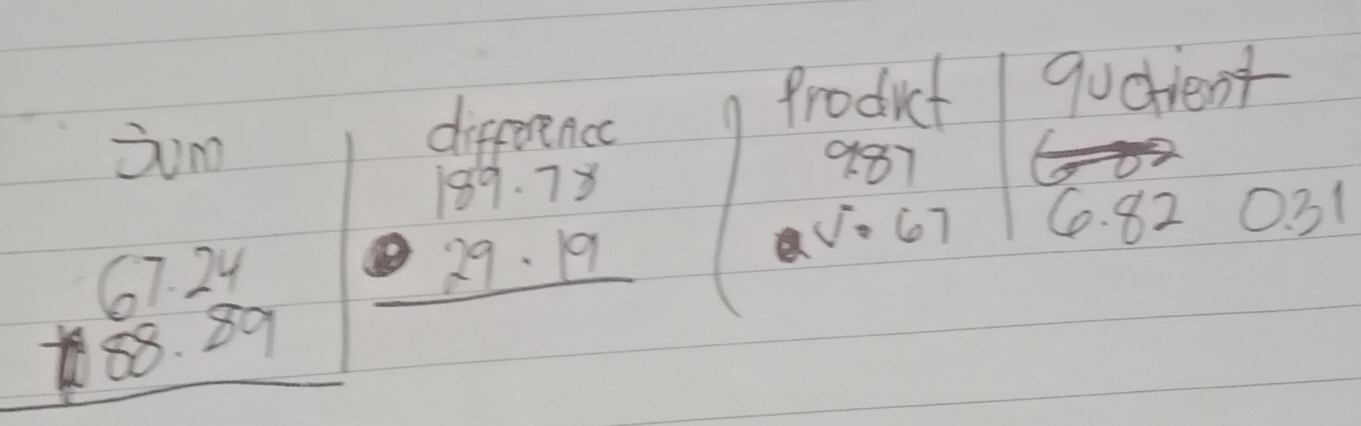 Sum
67.24
+ 88.89
difference
189.78
29.19
Product
9.87
67
qudient
6.82 0.31